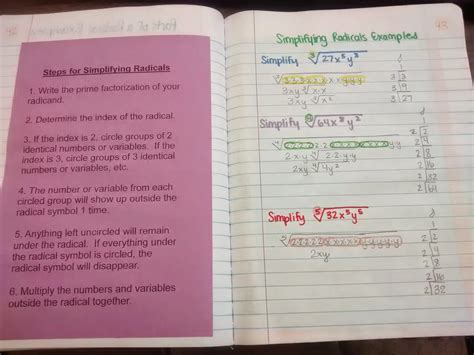 43
Steps for Simplifying Radicals
1. Write the prime factorization of your
radicand.
2. Determine the index of the radical.
3. If the index is 2, circle groups of 2
identical numbers or variables. If the
index is 3, circle groups of 3 identical
numbers or variables, etc.
4. The number or variable from each
circled group will show up outside the
radical symbol 1 time.
5. Anything left uncircled will remain
under the radical. If everything under
the radical symbol is circled, the
radical symbol will disappear.
6. Multiply the numbers and variables
outside the radical together.
Simplifying Radicals Examples
Simplify ∛27x⁵y³
1
3 3
3xy ∛x·x 3 9
3xy ∛x² 3 27
Simplify
1
2 2
2 4
2 8
2 16
2 32
2 64
Simplify ⁵√32x⁵y⁵
1
2 2
2xy 2 4
2 8
2 16
2 32